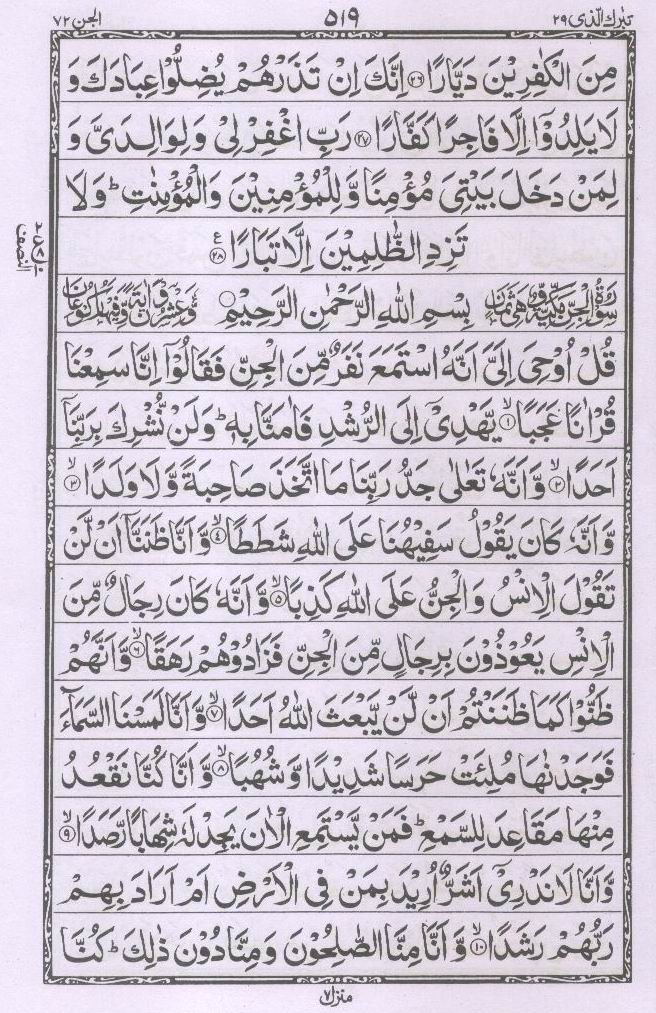 تبرك الذى ٢٩
٥١٩
الجن ٧٢
مِنَ الْكٰفِرِيْنَ دَيَّارًا ۝٢٦ اِنَّكَ اِنْ تَذَرْهُمْ يُضِلُّوْا عِبَادَكَ وَ
لَا يَلِدُوْۤا اِلَّا فَاجِرًا كَفَّارًا ۝٢٧ رَبِّ اغْفِرْ لِىْ وَلِوَالِدَىَّ وَ
لِمَنْ دَخَلَ بَيْتِىَ مُؤْمِنًا وَّلِلْمُؤْمِنِيْنَ وَالْمُؤْمِنٰتِ ؕ وَلَا
تَزِدِ الظّٰلِمِيْنَ اِلَّا تَبَارًا ۝٢٨ ع
سُوْرَةُ الْجِنِّ مَكِّيَّةٌ وَّهِىَ ثَمَانٍ
بِسْمِ اللهِ الرَّحْمٰنِ الرَّحِيْمِ ۝
وَّعِشْرُوْنَ اٰيَةً وَّفِيْهَا رُكُوْعَانِ
قُلْ اُوْحِىَ اِلَىَّ اَنَّهُ اسْتَمَعَ نَفَرٌ مِّنَ الْجِنِّ فَقَالُوْۤا اِنَّا سَمِعْنَا
قُرْاٰنًا عَجَبًا ۝١ۙ يَّهْدِىْۤ اِلَى الرُّشْدِ فَاٰمَنَّا بِهٖ ؕ وَلَنْ نُّشْرِكَ بِرَبِّنَاۤ
اَحَدًا ۝٢ۙ وَّاَنَّهٗ تَعٰلٰى جَدُّ رَبِّنَا مَا اتَّخَذَ صَاحِبَةً وَّلَا وَلَدًا ۝٣ۙ
وَّاَنَّهٗ كَانَ يَقُوْلُ سَفِيْهُنَا عَلَى اللهِ شَطَطًا ۝٤ۙ وَّاَنَّا ظَنَنَّاۤ اَنْ لَّنْ
تَقُوْلَ الْاِنْسُ وَالْجِنُّ عَلَى اللهِ كَذِبًا ۝٥ۙ وَّاَنَّهٗ كَانَ رِجَالٌ مِّنَ
الْاِنْسِ يَعُوْذُوْنَ بِرِجَالٍ مِّنَ الْجِنِّ فَزَادُوْهُمْ رَهَقًا ۝٦ۙ وَّاَنَّهُمْ
ظَنُّوْا كَمَا ظَنَنْتُمْ اَنْ لَّنْ يَّبْعَثَ اللهُ اَحَدًا ۝٧ۙ وَّاَنَّا لَمَسْنَا السَّمَآءَ
فَوَجَدْنٰهَا مُلِئَتْ حَرَسًا شَدِيْدًا وَّشُهُبًا ۝٨ۙ وَّاَنَّا كُنَّا نَقْعُدُ
مِنْهَا مَقَاعِدَ لِلسَّمْعِ ؕ فَمَنْ يَّسْتَمِعِ الْاٰنَ يَجِدْ لَهٗ شِهَابًا رَّصَدًا ۝٩ۙ
وَّاَنَّا لَا نَدْرِىْۤ اَشَرٌّ اُرِيْدَ بِمَنْ فِى الْاَرْضِ اَمْ اَرَادَ بِهِمْ
رَبُّهُمْ رَشَدًا ۝١٠ۙ وَّاَنَّا مِنَّا الصّٰلِحُوْنَ وَمِنَّا دُوْنَ ذٰلِكَ ؕ كُنَّا
منزل ٧
النصف